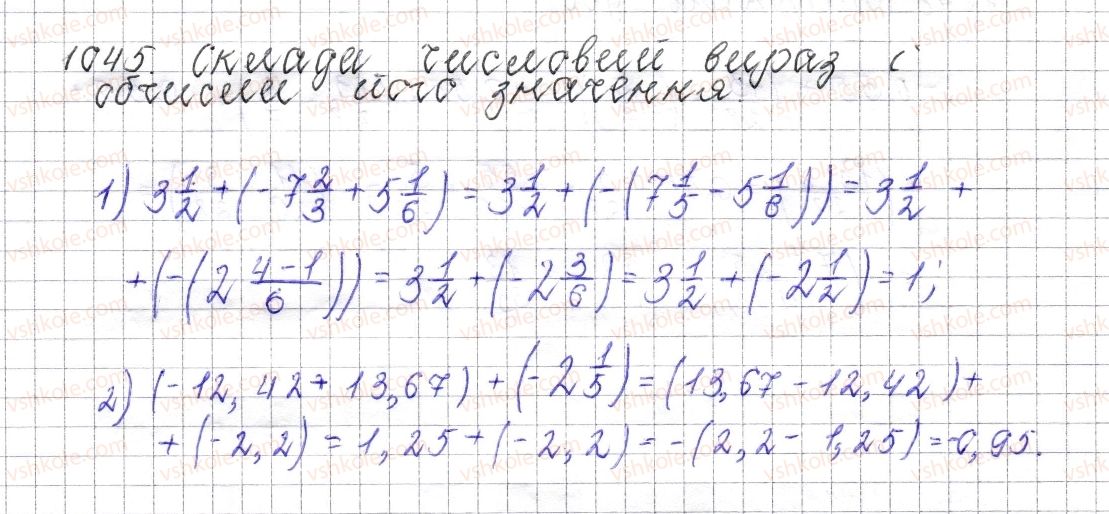 1045. Склади числовий вираз і
обчисли його значення:
1) 3 1/2 + (-7 2/3 + 5 1/6) = 3 1/2 + (-(7 1/5 - 5 1/6)) = 3 1/2 +
+ (-(2 (4-1)/6)) = 3 1/2 + (-2 3/6) = 3 1/2 + (-2 1/2) = 1;
2) (-12,42 + 13,67) + (-2 1/5) = (13,67 - 12,42) +
+ (-2,2) = 1,25 + (-2,2) = -(2,2 - 1,25) = -0,95.